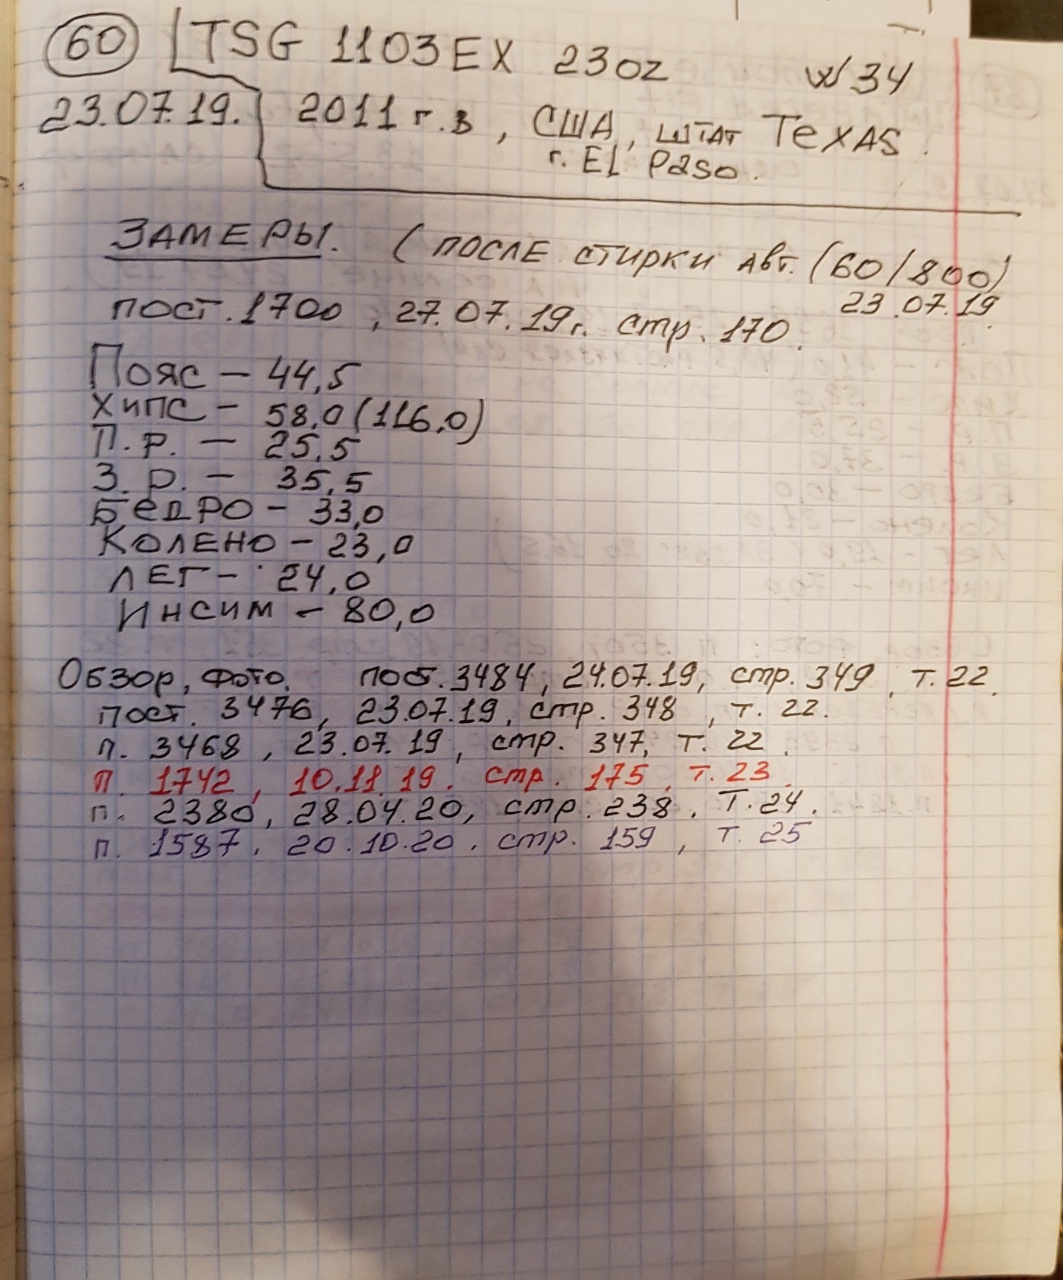 60 TSG 1103EX 23oz W34
23.07.19. 2011 г.в, США, штат TEXAS.
г. EL Paso.
ЗАМЕРЫ. (ПОСЛЕ СТИРКИ АВТ. (60/800)
23.07.19.
ПОСТ. 1700, 27.07.19г. стр. 170.
Пояс – 44,5
ХИПС – 58,0 (116,0)
П.Р. – 25,5
З.Р. – 35,5
БЕДРО – 33,0
КОЛЕНО – 23,0
ЛЕГ – 24,0
ИНСИМ – 80,0
Обзор, фото. пост. 3484, 24.07.19, стр. 349, т. 22.
пост. 3476, 23.07.19, стр. 348, т. 22.
п. 3468, 23.07.19, стр. 347, т. 22.
П. 1742, 10.11.19. стр. 175, т. 23.
п. 2380, 28.04.20, стр. 238. Т. 24.
п. 1587. 20.10.20. стр. 159, т. 25